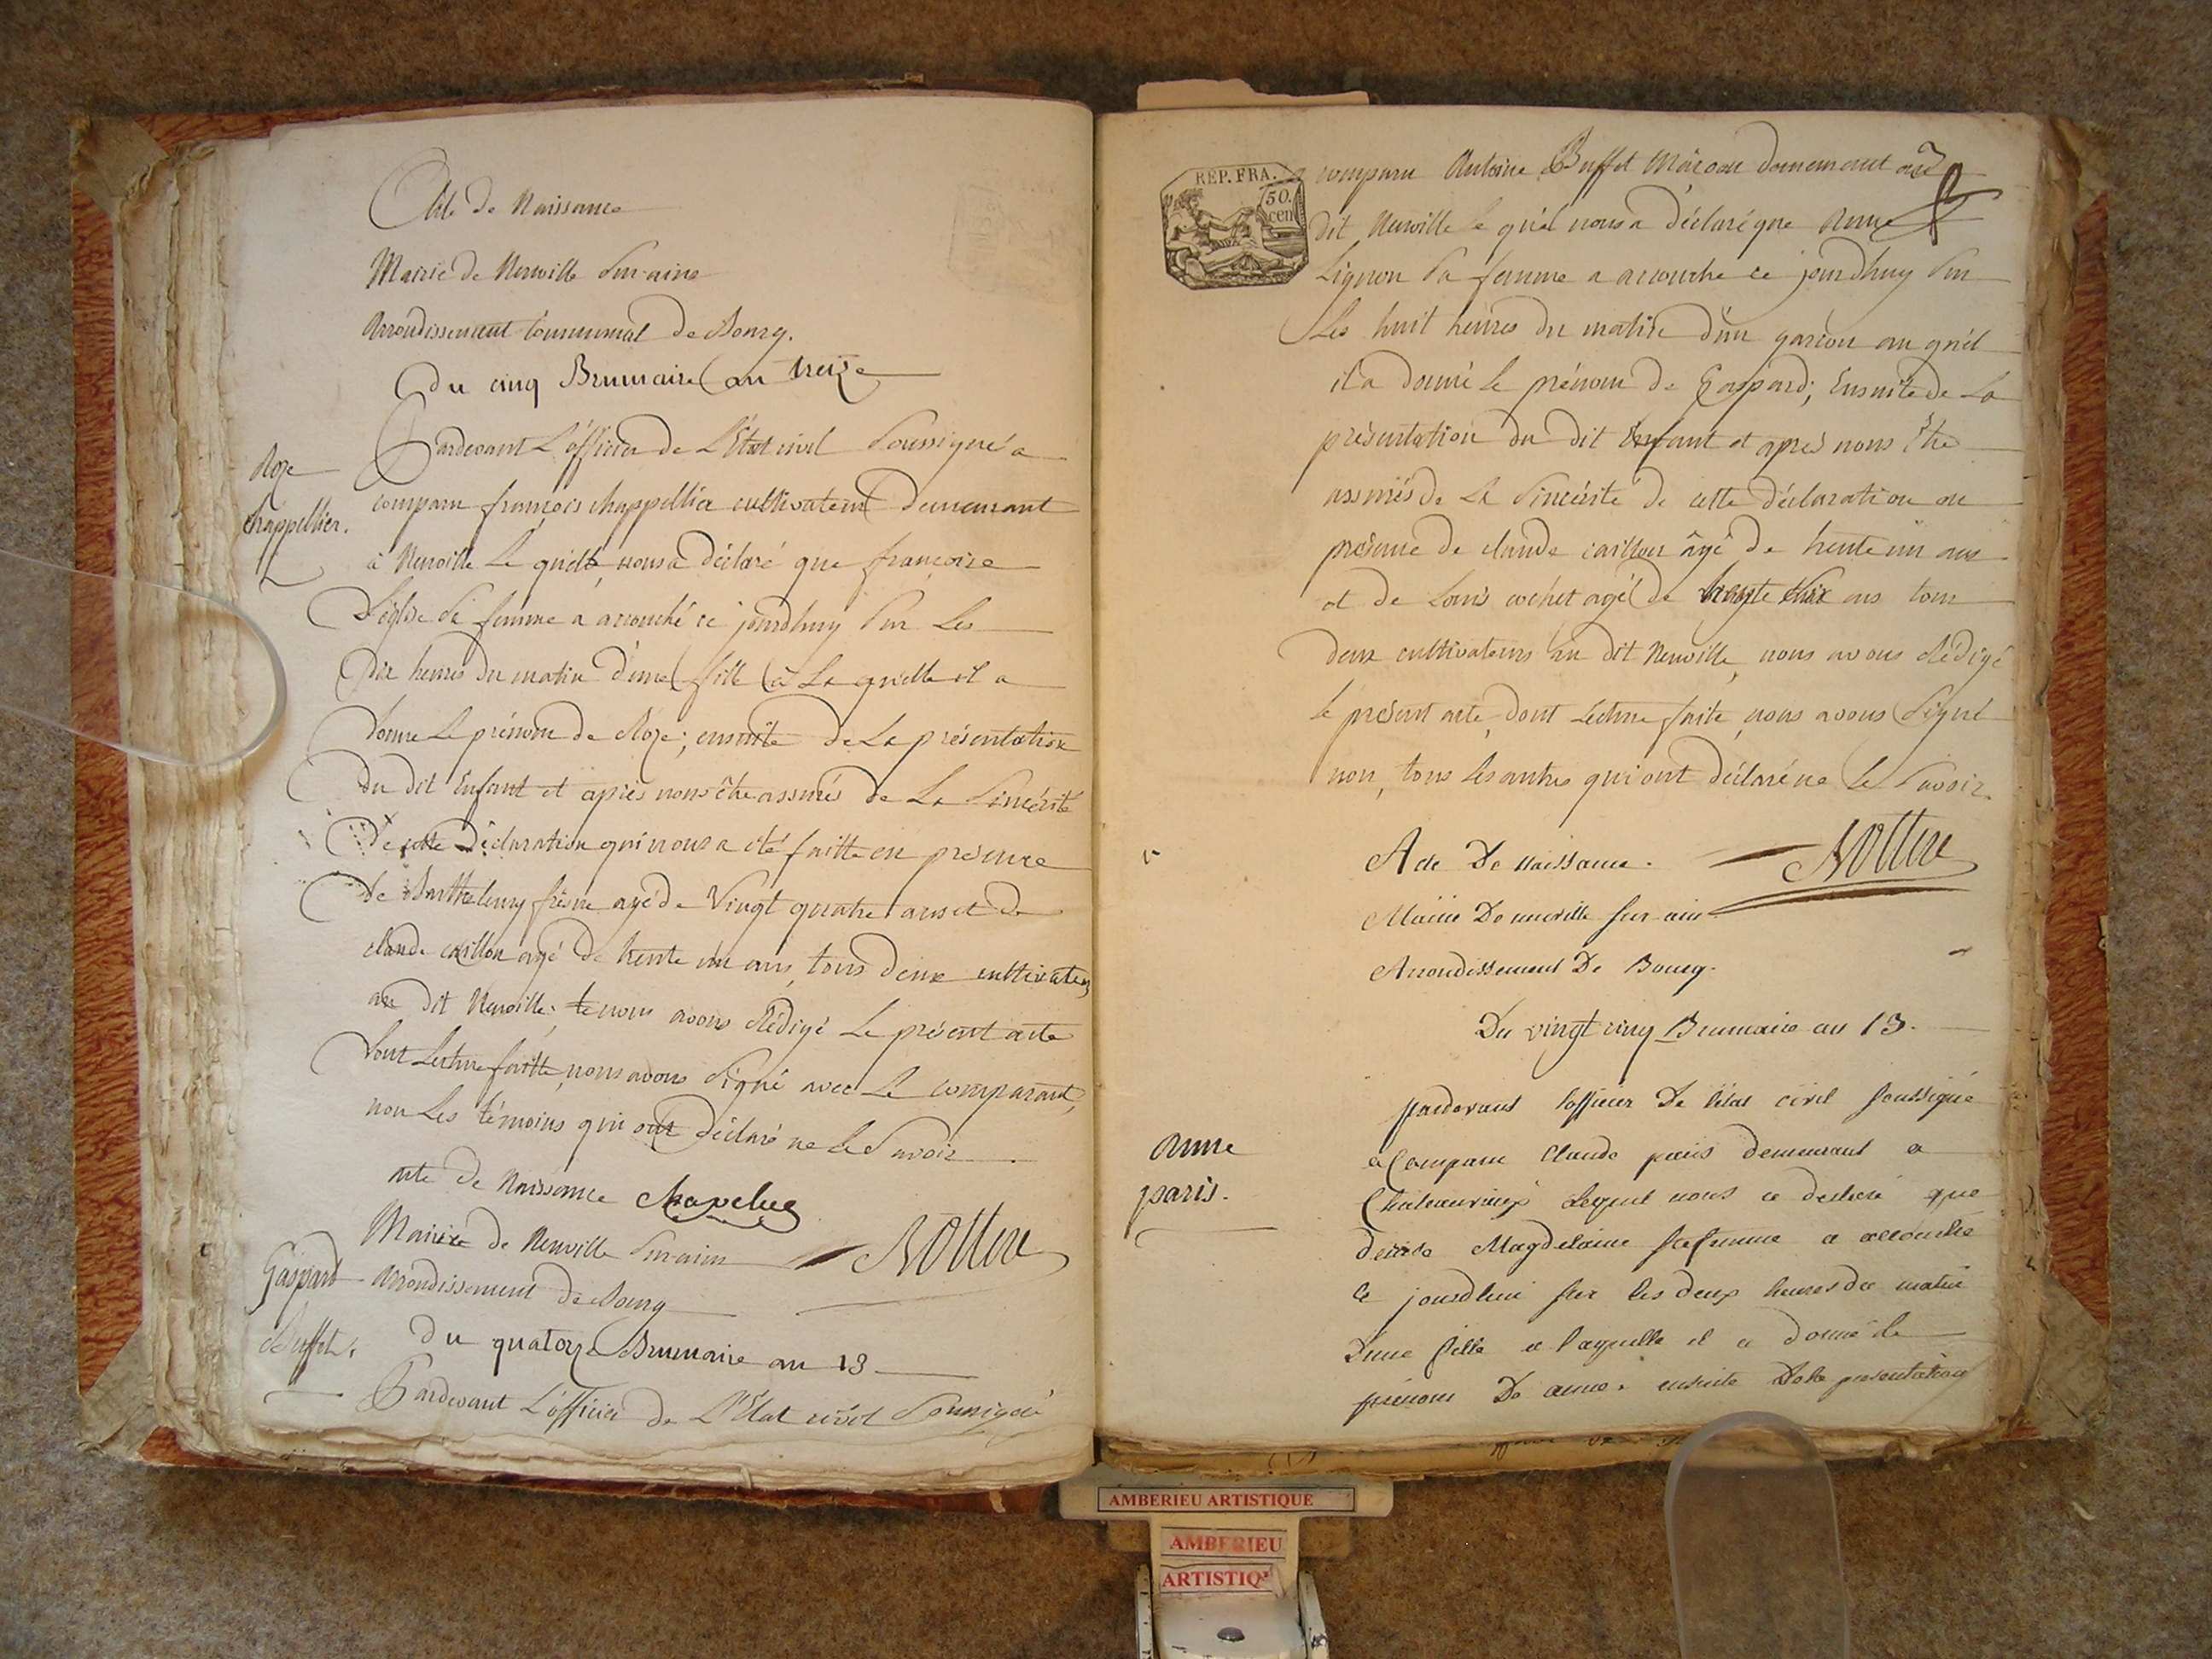 Acte de Naissance
Mairie de Neuville Sur-ains
Arrondissement Communal de Bourg.
Du cinq Brumaire an treize
Roze
chappellier.
Pardevant L'officier de L'Etat civil Soussigné a
comparu françois chappellier cultivateur Demeurant
à Neuville Le quel, nous a déclaré que françoise
Sa femme a accouché ce jourdhuy Sur Les
Dix heures Du matin d'une fille à La quelle il a
donné Le prénom de Roze; ensuite de La présentation
du dit Enfant et après nous être assurés de La Sincérité
De cette Déclaration qui nous a été faitte en présence
De Barthelemy frène agé de Vingt quatre ans et De
claude caillon agé De trente un ans, tous deux cultivateurs
au dit Neuville; nous avons Rédigé Le présent acte
Dont Lecture faitte, nous avons Signé avec Le comparant,
non Les témoins qui ont Déclaré ne Le Savoir
acte de Naissance Chapelue
Mairie de Neuville Sur-ain
Nottin
Gaspard
Buffet.
Arrondissement de Bourg
Du quatorze Brumaire an 13
Pardevant L'officier de L'Etat civil Soussigné
REP. FRA.
50.
cen
comparu Antoine Buffet Maçon demeurant au
dit Neuville le quel nous a déclaré que Anne
Lignon Sa femme a accouché ce jourdhuy Sur
Les huit heures du matin d'un garçon au quel
il a donné Le prénom de Gaspard; Ensuite de La
présentation du dit Enfant et après nous être
assurés de La Sincérité de cette déclaration en
présence de claude caillon âgé de trente un ans
et de Louis cochet agé de ans tous
deux cultivateurs au dit Neuville, nous avons Rédigé
le présent acte, dont Lecture faite, nous avons Signé
non, tous Les autres qui ont déclaré ne le Savoir.
Nottin
Acte De Naissance.
Mairie De neuville sur ain
Arrondissement De Bourg.
Du vingt cinq Brumaire an 13.
Anne
paris.
pardevant l'officier De l'état civil soussigné
a Comparu Claude paris demeurant a
Lequel nous a declaré que
Magdelaine sa femme a accouché
ce jourdhui sur les deux heures du matin
D'une fille a laquelle il a donné le
prénom De anne. ensuite De la presentation
AMBERIEU ARTISTIQUE
AMBERIEU
ARTISTIQ